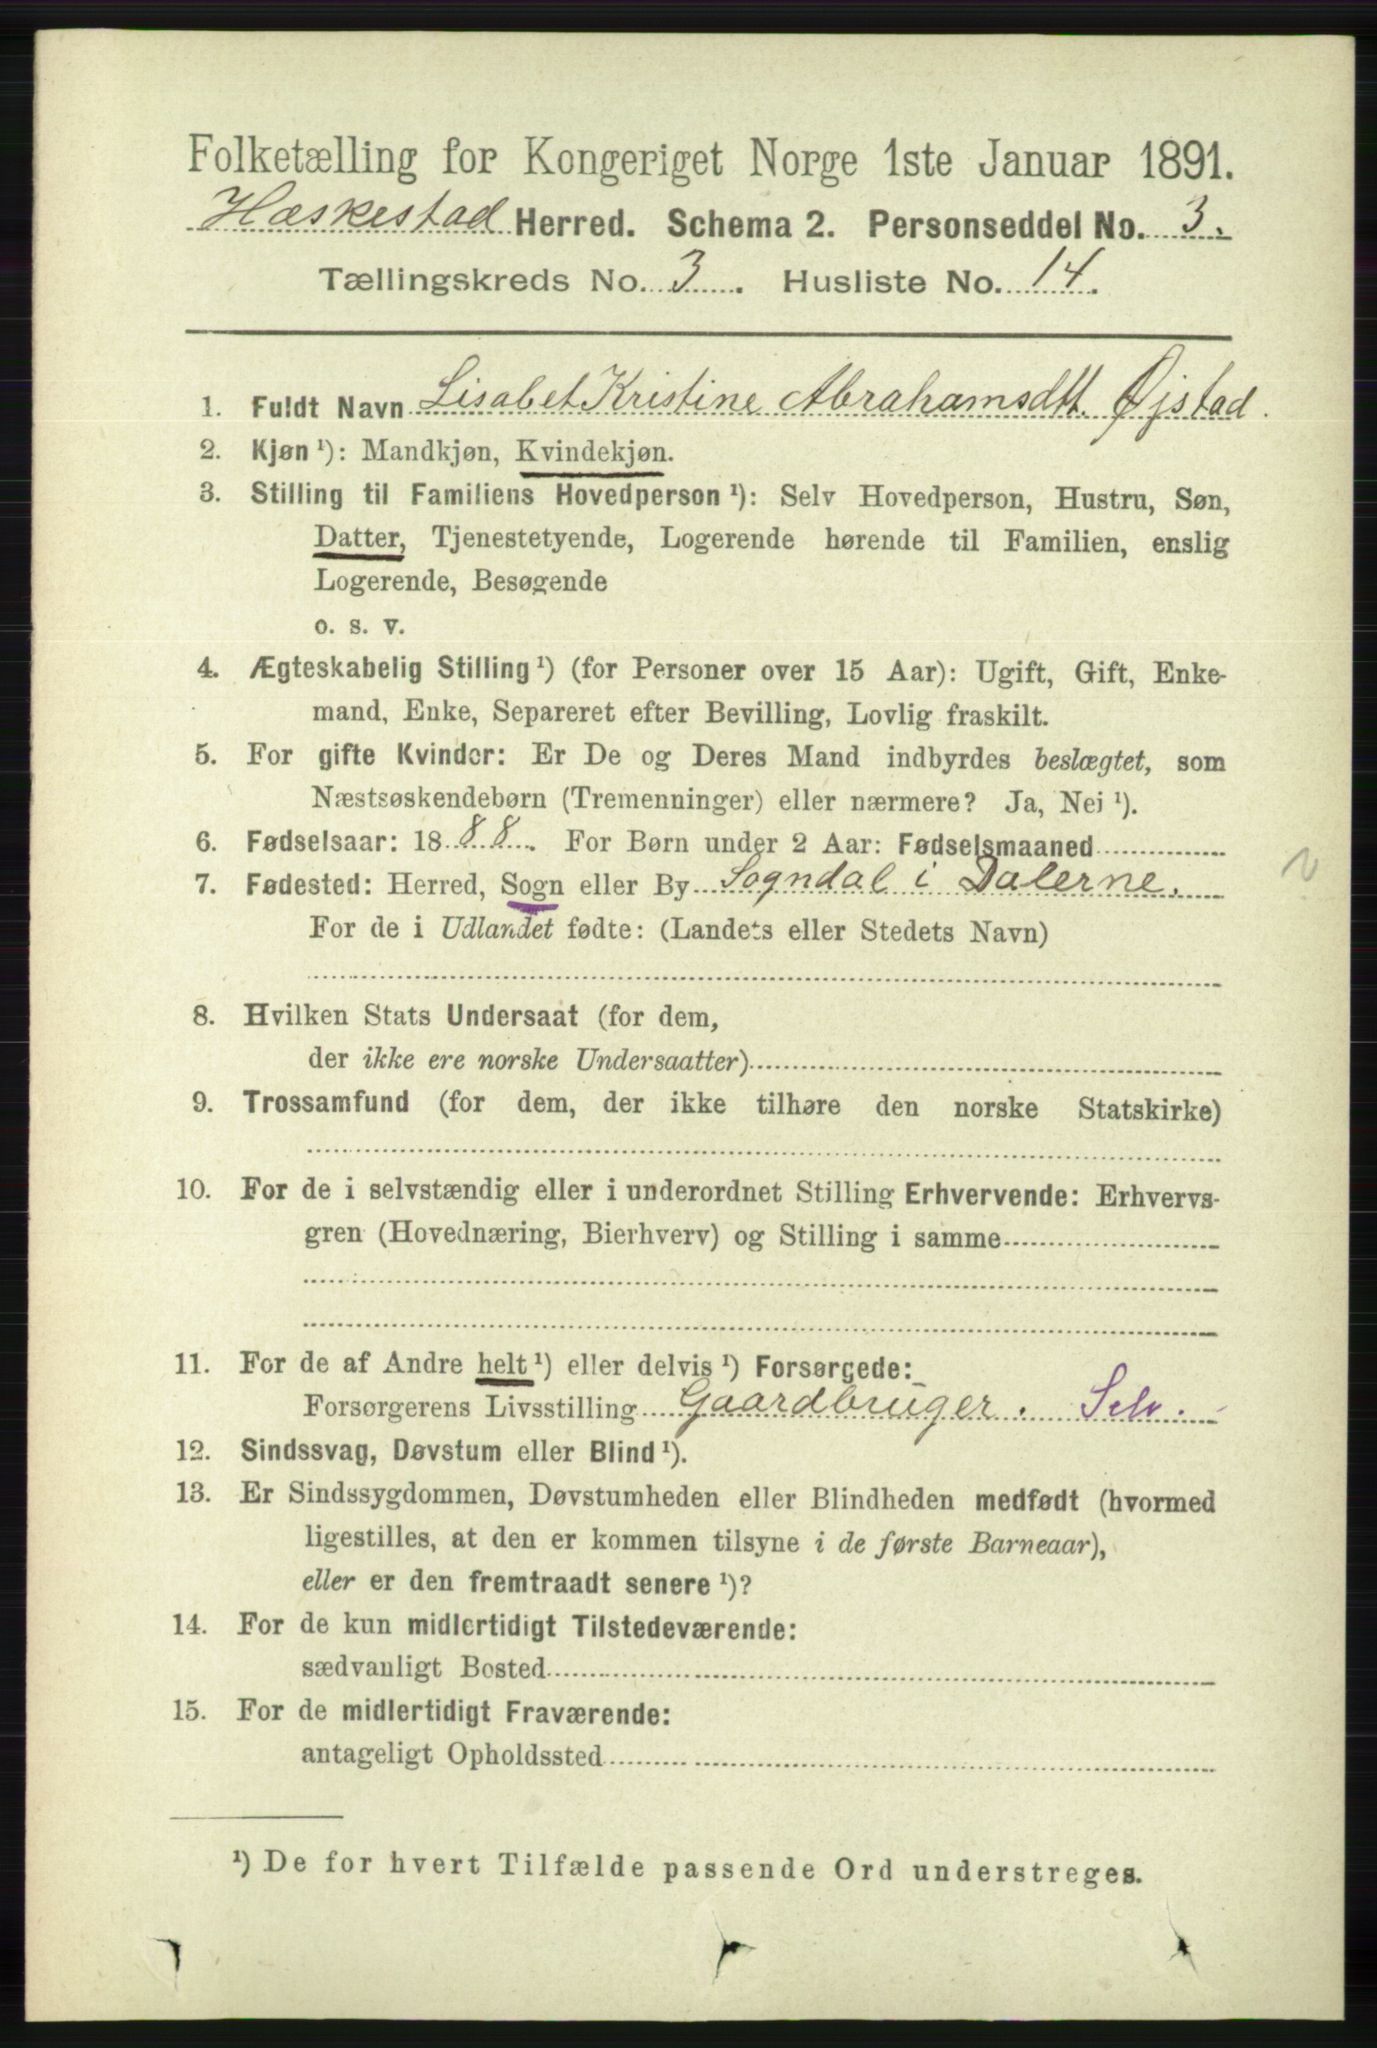 Folketælling for Kongeriget Norge 1ste Januar 1891.
Hæskestad Herred. Schema 2. Personseddel No. 3.
Tællingskreds No. 3. Husliste No. 14.
1. Fuldt Navn Lisabet Kristine Abrahamsdtt. Øjstad.
2. Kjøn ¹): Mandkjøn, Kvindekjøn.
3. Stilling til Familiens Hovedperson ¹): Selv Hovedperson, Hustru, Søn,
Datter, Tjenestetyende, Logerende hørende til Familien, enslig
Logerende, Besøgende
o. s. v.
4. Ægteskabelig Stilling ¹) (for Personer over 15 Aar): Ugift, Gift, Enke-
mand, Enke, Separeret efter Bevilling, Lovlig fraskilt.
5. For gifte Kvinder: Er De og Deres Mand indbyrdes beslægtet, som
Næstsøskendebørn (Tremenninger) eller nærmere? Ja, Nei ¹).
6. Fødselsaar: 1888. For Børn under 2 Aar: Fødselsmaaned
7. Fødested: Herred, Sogn eller By Sogndal i Dalerne.
For de i Udlandet fødte: (Landets eller Stedets Navn)
8. Hvilken Stats Undersaat (for dem,
der ikke ere norske Undersaatter)
9. Trossamfund (for dem, der ikke tilhøre den norske Statskirke)
10. For de i selvstændig eller i underordnet Stilling Erhvervende: Erhvervs-
gren (Hovednæring, Bierhverv) og Stilling i samme
11. For de af Andre helt ¹) eller delvis ¹) Forsørgede:
Forsørgerens Livsstilling Gaardbruger. Selv.
12. Sindssvag, Døvstum eller Blind ¹).
13. Er Sindssygdommen, Døvstumheden eller Blindheden medfødt (hvormed
ligestilles, at den er kommen tilsyne i de første Barneaar),
eller er den fremtraadt senere ¹)?
14. For de kun midlertidigt Tilstedeværende:
sædvanligt Bosted
15. For de midlertidigt Fraværende:
antageligt Opholdssted
¹) De for hvert Tilfælde passende Ord understreges.